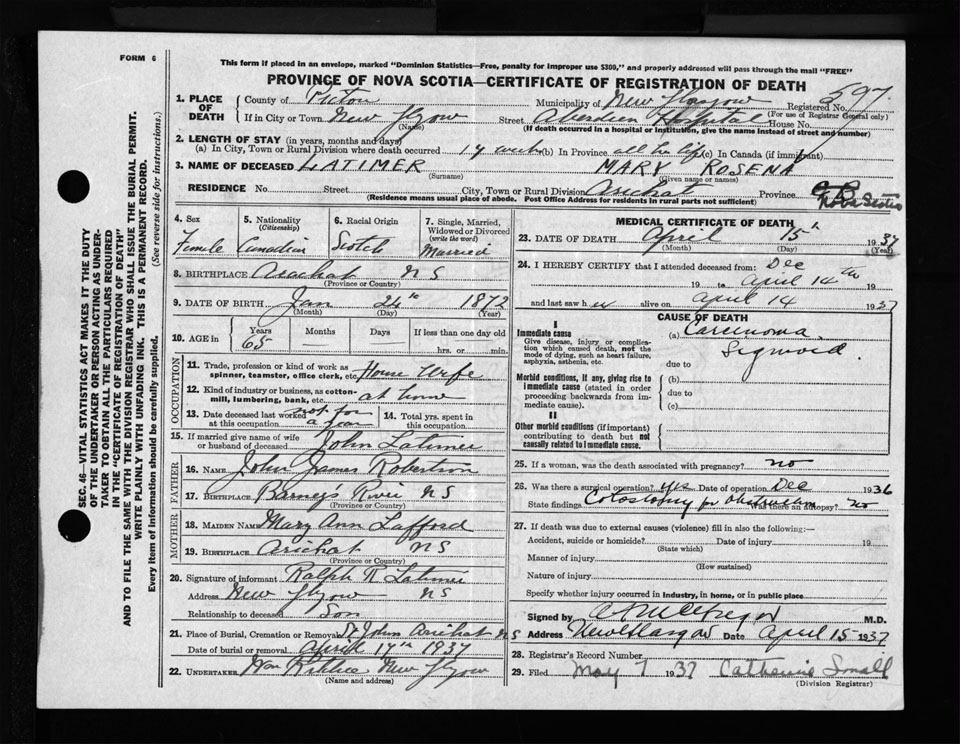 FORM 6
This form if placed in an envelope, marked "Dominion Statistics—Free, penalty for improper use $300," and properly addressed will pass through the mail "FREE"
PROVINCE OF NOVA SCOTIA—CERTIFICATE OF REGISTRATION OF DEATH
1. PLACE OF DEATH County of Pictou Municipality of New Glasgow Registered No. 597
(For use of Registrar General only)
If in City or Town New Glgow Street Aberdeen Hospital House No.
(Name) (If death occurred in a hospital or institution, give the name instead of street and number)
2. LENGTH OF STAY (in years, months and days)
(a) In City, Town or Rural Division where death occurred weeks (b) In Province all her life (c) In Canada (if immigrant)
3. NAME OF DECEASED LATIMER MARY ROSENA
(Surname) (Given name or names)
RESIDENCE No. Street City, Town or Rural Division Arichat Province Nova Scotia
(Residence means usual place of abode. Post Office Address for residents in rural parts not sufficient)
4. Sex
Female
5. Nationality
(Citizenship)
Canadian
6. Racial Origin
Scotch
7. Single, Married, Widowed or Divorced
(write the word)
Married
8. BIRTHPLACE Arichat NS
(Province or Country)
9. DATE OF BIRTH Jan 24th 1872
(Month) (Day) (Year)
10. AGE in Years Months Days If less than one day old
65 hrs. or min.
OCCUPATION
11. Trade, profession or kind of work as
spinner, teamster, office clerk, etc. House Wife
12. Kind of industry or business, as cotton-
mill, lumbering, bank, etc. at home
13. Date deceased last worked at this occupation not for a year
14. Total yrs. spent in this occupation
15. If married give name of wife
or husband of deceased John Latimer
FATHER
16. NAME John James Robertson
17. BIRTHPLACE Barney's River NS
(Province or Country)
MOTHER
18. MAIDEN NAME Mary Ann Lafford
19. BIRTHPLACE Arichat NS
(Province or Country)
20. Signature of informant Ralph N Latimer
Address New Glgow NS
Relationship to deceased Son
21. Place of Burial, Cremation or Removal St Johns Arichat NS
Date of burial or removal April 17th 1937
22. UNDERTAKER New Glgow
(Name and address)
MEDICAL CERTIFICATE OF DEATH
23. DATE OF DEATH April 15th 1937
(Month) (Day) (Year)
24. I HEREBY CERTIFY that I attended deceased from: Dec
19 to April 14th 19
and last saw her alive on April 14 1937
CAUSE OF DEATH
I
Immediate cause (a) Carcinoma
Give disease, injury or compli-
cation which caused death, not the
mode of dying, such as heart failure,
asphyxia, asthenia, etc.
Sigmoid.
due to
Morbid conditions, if any, giving rise to
immediate cause (stated in order
proceeding backwards from im-
mediate cause).
(b)
due to
(c)
II
Other morbid conditions (if important)
contributing to death but not
causally related to immediate cause.
25. If a woman, was the death associated with pregnancy? no
26. Was there a surgical operation? yes Date of operation Dec 1936
State findings Colostomy for obstruction Was there an autopsy? no
27. If death was due to external causes (violence) fill in also the following:—
Accident, suicide or homicide? Date of injury 19
(State which)
Manner of injury
(How sustained)
Nature of injury
Specify whether injury occurred in Industry, in home, or in public place
Signed by M.D.
Address New Glasgow Date April 15 1937
28. Registrar's Record Number
29. Filed May 7 1937 Catharine Small
(Division Registrar)
SEC. 46—VITAL STATISTICS ACT MAKES IT THE DUTY
OF THE UNDERTAKER OR PERSON ACTING AS UNDER-
TAKER TO OBTAIN ALL THE PARTICULARS REQUIRED
IN THE "CERTIFICATE OF REGISTRATION OF DEATH"
AND TO FILE THE SAME WITH THE DIVISION REGISTRAR WHO SHALL ISSUE THE BURIAL PERMIT.
WRITE PLAINLY WITH UNFADING INK. THIS IS A PERMANENT RECORD.
Every item of information should be carefully supplied. (See reverse side for instructions.)